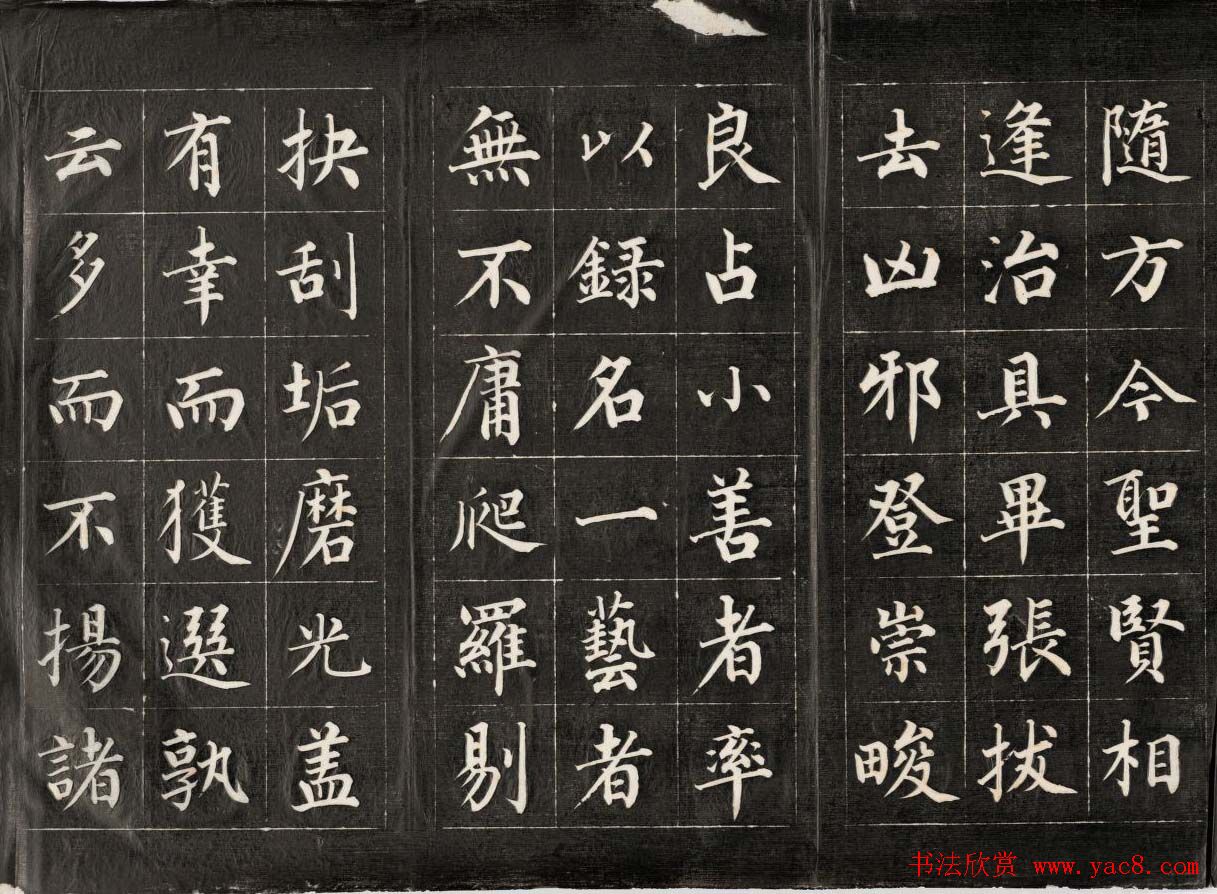 隨方今聖賢相
逢治具畢張拔
去凶邪登崇畯
良占小善者率
以録名一藝者
無不庸爬羅剔
抉刮垢磨光盖
有幸而獲選孰
云多而不揚諸
书法欣赏 www.yac8.com